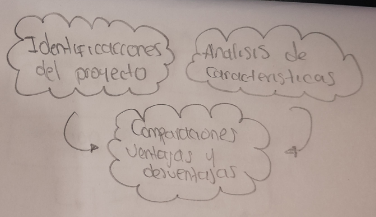 Identificaciones
del proyecto
Analisis de
caracteristicas
Comparaciones
ventajas y
desventajas